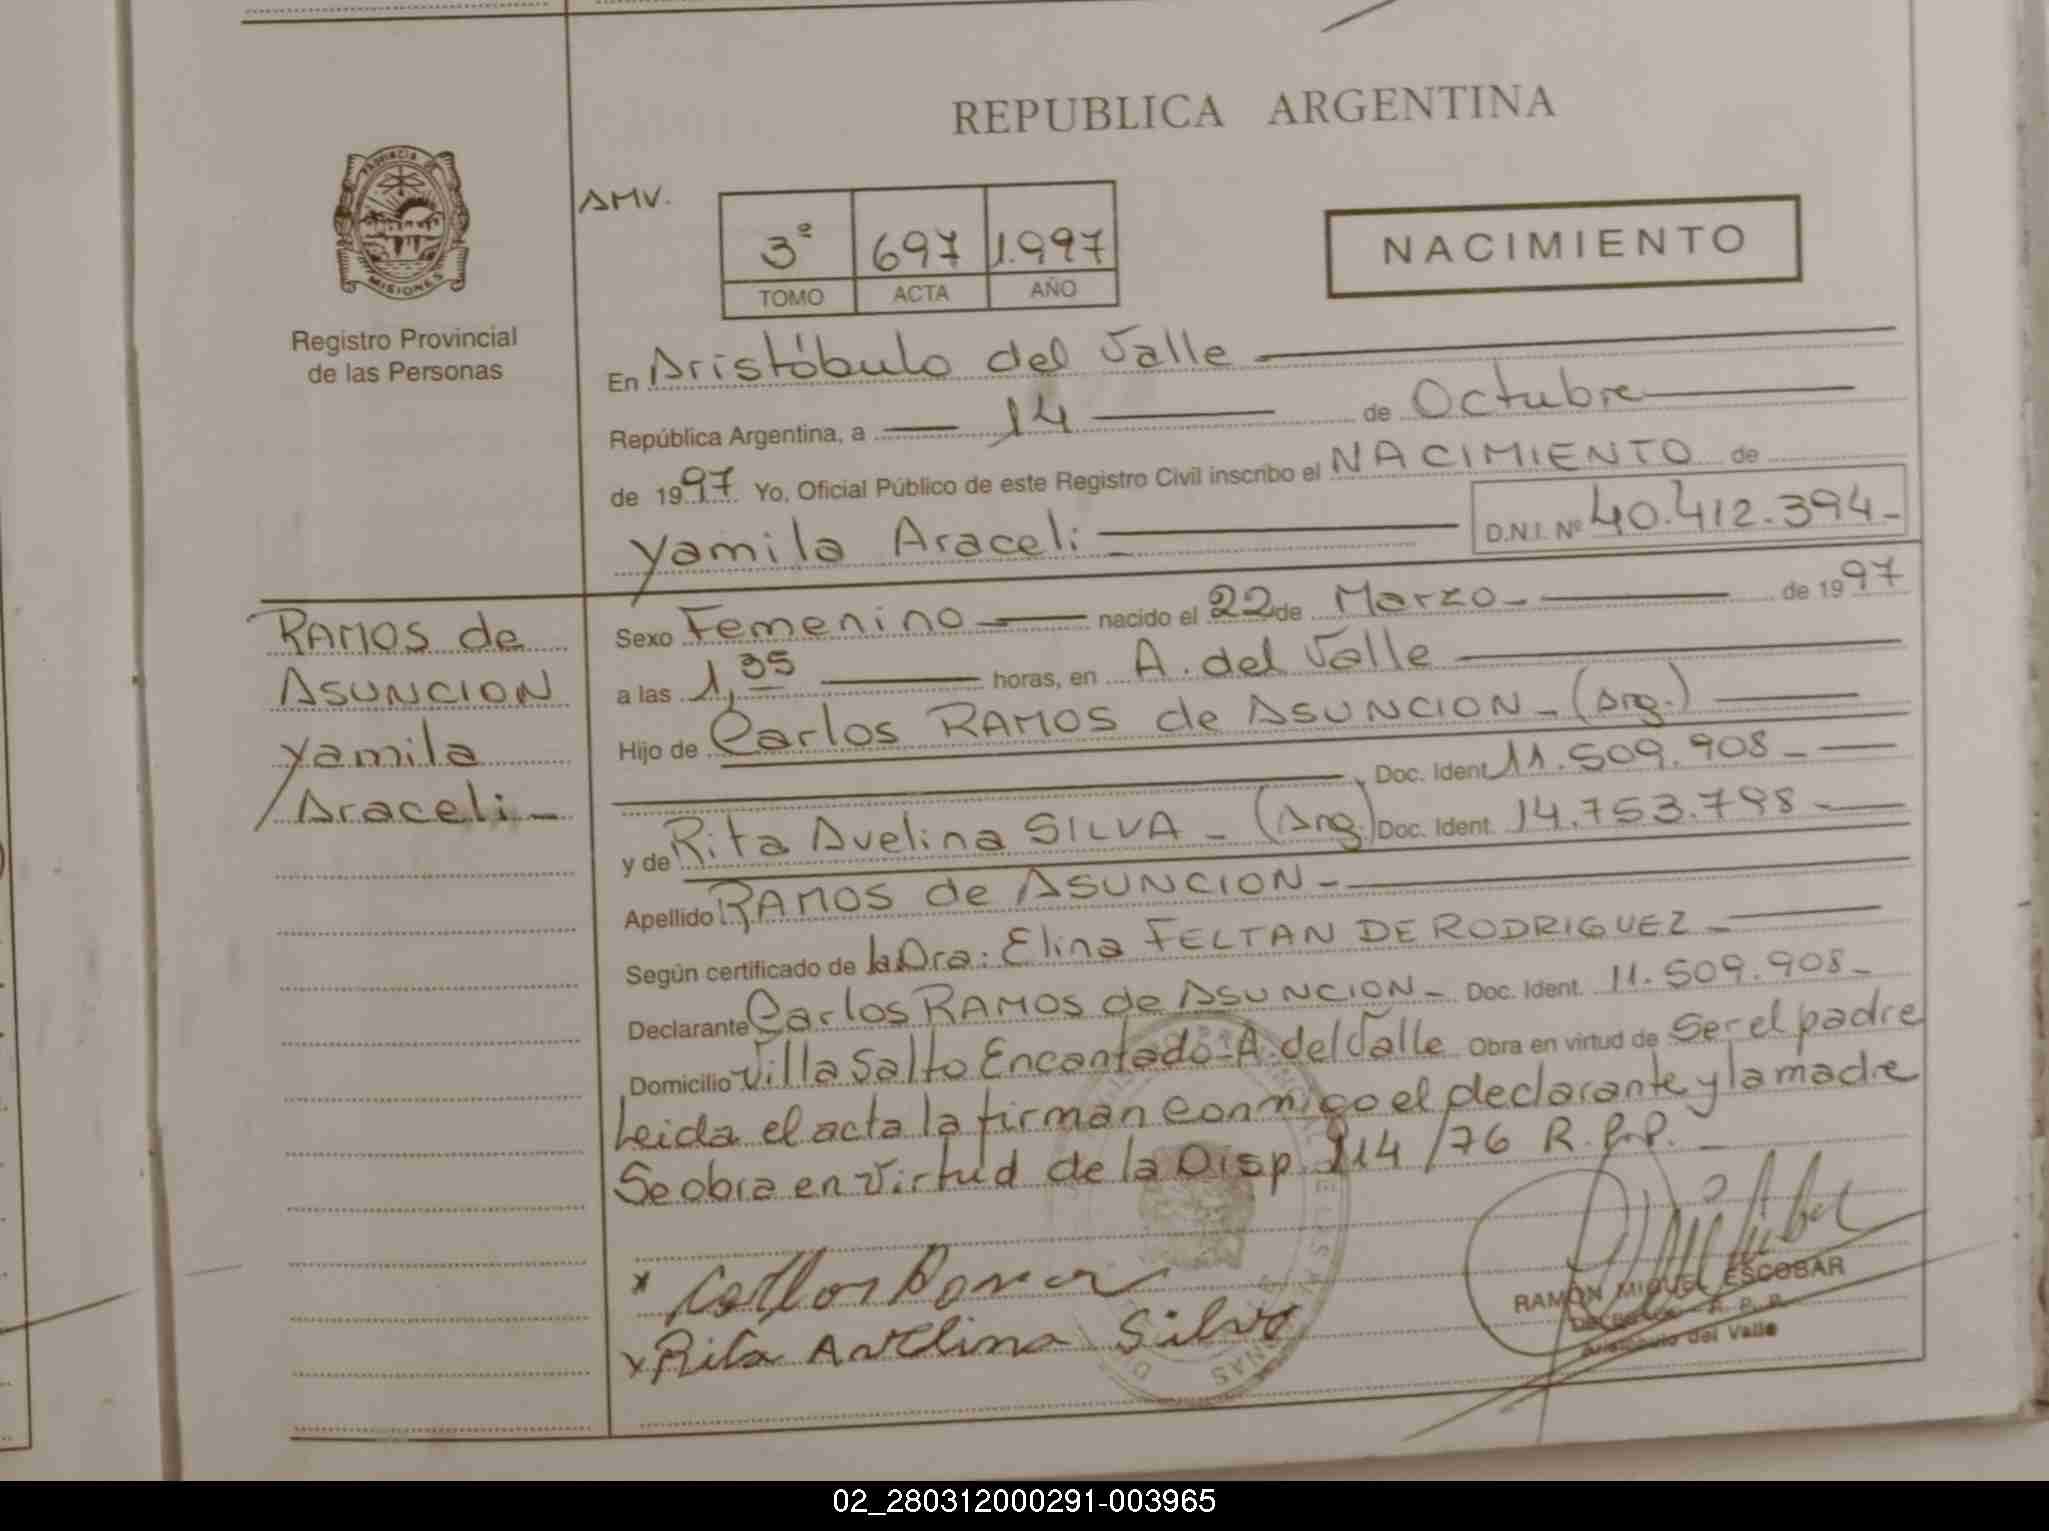 REPUBLICA ARGENTINA
PROVINCIA DE
MISIONES
Registro Provincial
de las Personas
AMV.
3º 697 1.997
TOMO ACTA AÑO
NACIMIENTO
En Aristóbulo del Valle
República Argentina, a 14 de Octubre
de 1997 Yo, Oficial Público de este Registro Civil inscribo el NACIMIENTO de
Yamila Araceli D.N.I. Nº 40.412.394-
RAMOS de
ASUNCION
Yamila
Araceli-
Sexo Femenino nacido el 22 de Marzo- de 1997
a las 1,35 horas, en A. del Valle
Hijo de Carlos RAMOS de ASUNCION- (Arg.)
Doc. Ident 11.509.908-
y de Rita Avelina SILVA- (Arg.) Doc. Ident. 14.753.798-
Apellido RAMOS de ASUNCION-
Según certificado de la Dra: Elina FELTAN DE RODRIGUEZ-
Declarante Carlos RAMOS de ASUNCION- Doc. Ident. 11.509.908-
Domicilio Villa Salto Encantado-A. del Valle Obra en virtud de Ser el padre
Leida el acta la firman conmigo el declarante y la madre
Se obra en virtud de la Disp. 114/76 R.P.P.-
x Carlos Ramos
x Rita Avelina Silva
RAMON MIGUEL ESCOBAR
R. P. P.
Aristóbulo del Valle
02_280312000291-003965